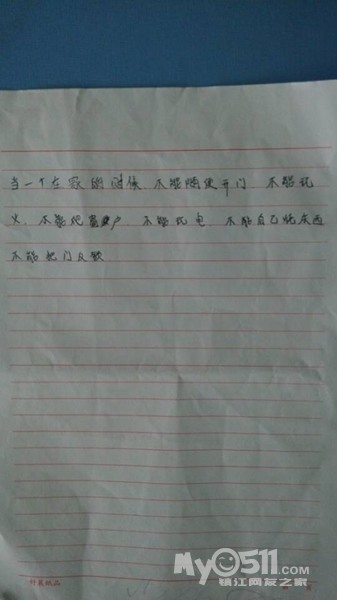 当一个在家的时候 不能随便开门 不能玩
火 不能爬窗户 不能玩电 不能自己烧东西
不能把门反锁
My0511.com
镇江网友之家